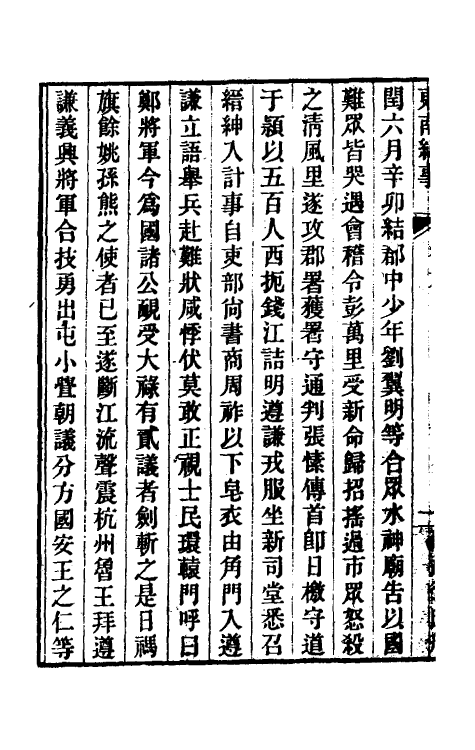 東南紀事
閏六月辛卯結郡中少年劉翼明等合眾水神廟告以國
難眾皆哭遇會稽令彭萬里受新命歸招搖過市眾怒殺
之清風里遂攻郡署獲署守通判張愫傳首卽日檄守道
于頴以五百人西扼錢江詰明遵謙戎服坐新司堂悉召
縉紳入計事自東部尙書商周祚以下皂衣由角門入遵
謙立語舉兵赴難狀咸悸伏莫敢正視士民環轅門呼曰
鄭將軍今爲國諸公靦受大祿有貳議者劍斬之是日禡
旗餘姚孫熊之使者已至遂斷江流聲震杭州魯王拜遵
謙義興將軍合技勇出屯小亹朝議分方國安王之仁等